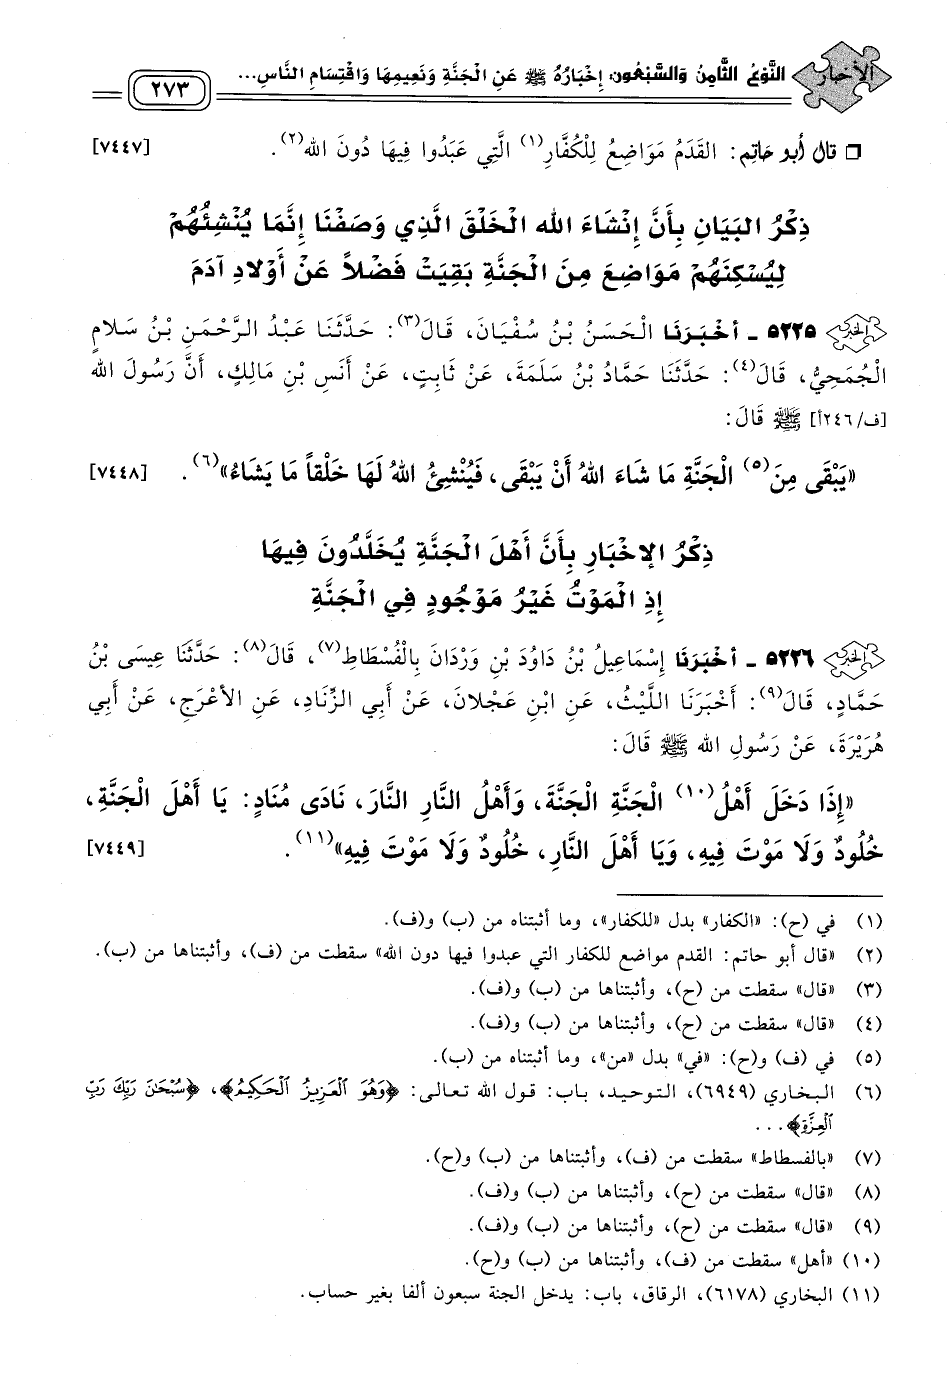 الأخبار النَّوْعُ الثَّامِنُ وَالسَّبْعُونَ: إِخْبَارُهُ ﷺ عَنِ الْجَنَّةِ وَنَعِيمِهَا وَاقْتِسَامِ النَّاسِ... ٢٧٣
❒ قال أبو حاتم: القَدَمُ مَوَاضِعُ لِلْكُفَّارِ(١) الَّتِي عَبَدُوا فِيهَا دُونَ الله(٢). [٧٤٤٧]
ذِكْرُ البَيَانِ بِأَنَّ إِنْشَاءَ الله الْخَلْقَ الَّذِي وَصَفْنَا إِنَّمَا يُنْشِئُهُمْ
لِيُسْكِنَهُمْ مَوَاضِعَ مِنَ الْجَنَّةِ بَقِيَتْ فَضْلاً عَنْ أَوْلادِ آدَمَ
٥٢٢٥ ـ أخْبَرَنَا الْحَسَنُ بْنُ سُفْيَانَ، قَالَ(٣): حَدَّثَنَا عَبْدُ الرَّحْمَنِ بْنُ سَلامٍ
الْجُمَحِيُّ، قَالَ(٤): حَدَّثَنَا حَمَّادُ بْنُ سَلَمَةَ، عَنْ ثَابِتٍ، عَنْ أَنَسِ بْنِ مَالِكٍ، أَنَّ رَسُولَ الله
[ف/٢٤٦أ] ﷺ قَالَ:
«يَبْقَى مِنَ(٥) الْجَنَّةِ مَا شَاءَ اللهُ أَنْ يَبْقَى، فَيُنْشِئُ اللهُ لَهَا خَلْقاً مَا يَشَاءُ»(٦). [٧٤٤٨]
ذِكْرُ الإخْبَارِ بِأَنَّ أَهْلَ الْجَنَّةِ يُخَلَّدُونَ فِيهَا
إِذِ الْمَوْتُ غَيْرُ مَوْجُودٍ فِي الْجَنَّةِ
٥٢٢٦ ـ أخْبَرَنَا إِسْمَاعِيلُ بْنُ دَاوُدَ بْنِ وَرْدَانَ بِالْفُسْطَاطِ(٧)، قَالَ(٨): حَدَّثَنَا عِيسَى بْنُ
حَمَّادٍ، قَالَ(٩): أَخْبَرَنَا اللَّيْثُ، عَنِ ابْنِ عَجْلانَ، عَنْ أَبِي الزِّنَادِ، عَنِ الأَعْرَجِ، عَنْ أَبِي
هُرَيْرَةَ، عَنْ رَسُولِ الله ﷺ قَالَ:
«إِذَا دَخَلَ أَهْلُ(١٠) الْجَنَّةِ الْجَنَّةَ، وَأَهْلُ النَّارِ النَّارَ، نَادَى مُنَادٍ: يَا أَهْلَ الْجَنَّةِ،
خُلُودٌ وَلَا مَوْتَ فِيهِ، وَيَا أَهْلَ النَّارِ، خُلُودٌ وَلَا مَوْتَ فِيهِ»(١١). [٧٤٤٩]
(١) في (ح): «الكفار» بدل «للكفار»، وما أثبتناه من (ب) و(ف).
(٢) «قال أبو حاتم: القدم مواضع للكفار التي عبدوا فيها دون الله» سقطت من (ف)، وأثبتناها من (ب).
(٣) «قال» سقطت من (ح)، وأثبتناها من (ب) و(ف).
(٤) «قال» سقطت من (ح)، وأثبتناها من (ب) و(ف).
(٥) في (ف) و(ح): «في» بدل «من»، وما أثبتناه من (ب).
(٦) البخاري (٦٩٤٩)، التوحيد، باب: قول الله تعالى: ﴿وَهُوَ ٱلْعَزِيزُ ٱلْحَكِيمُ﴾، ﴿سُبْحَٰنَ رَبِّكَ رَبِّ
ٱلْعِزَّةِ﴾...
(٧) «بالفسطاط» سقطت من (ف)، وأثبتناها من (ب) و(ح).
(٨) «قال» سقطت من (ح)، وأثبتناها من (ب) و(ف).
(٩) «قال» سقطت من (ح)، وأثبتناها من (ب) و(ف).
(١٠) «أهل» سقطت من (ف)، وأثبتناها من (ب) و(ح).
(١١) البخاري (٦١٧٨)، الرقاق، باب: يدخل الجنة سبعون ألفا بغير حساب.